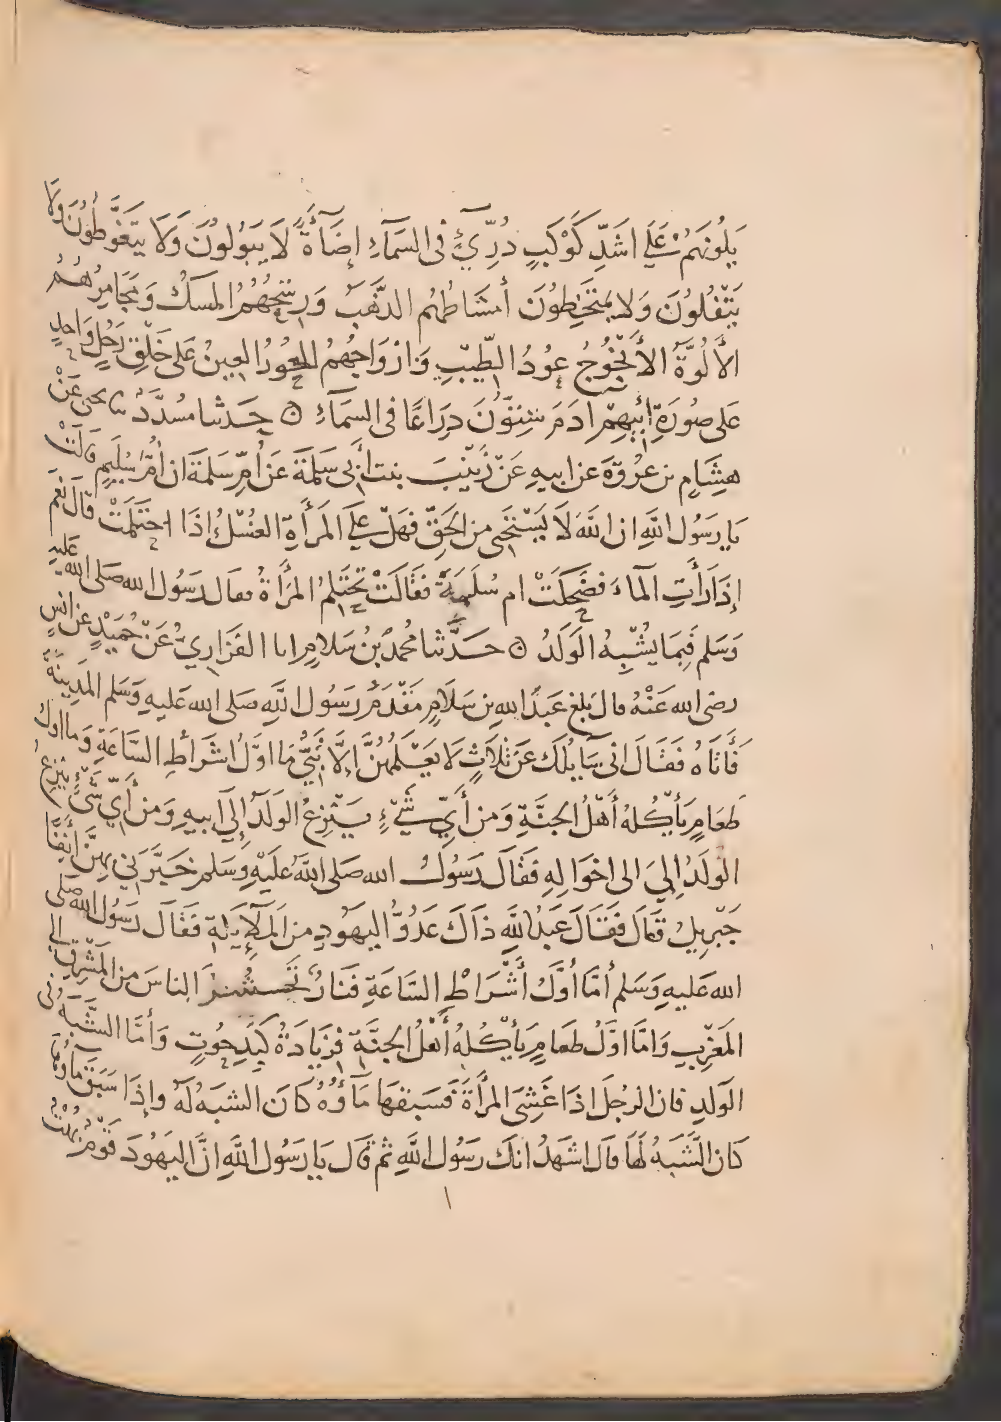 يَلُونَهُمْ عَلَى اشَدِّ كَوْكَبٍ دُرِّيٍّ فى السَمَآءِ إضَآءَةً لَا يَبُولُونَ وَلَا يَتَغَوَّطُونَ وَلَا
يَتْفُلُونَ وَلا يَمْتَخِطُونَ أمْشَاطُهُم الذَّهَبُ وَرَشْحُهُمُ المسكُ وَمَجَامِرُهُمُ
الأَلُوَّةُ الأَلَنْجُوجُ عُودُ الطّيبِ وَازْوَاجُهُمُ الحُورُ العِينُ عَلى خَلْقِ رَجُلٍ وَاحدٍ
عَلى صُورَةِ أبِيهِمْ ادَمَ سِتُّونَ ذِرَاعًا فى السَمَآءِ ۞ حَدثنا مُسَدَّدٌ ثنا يحيى عَنْ
هِشَامِ بن عُرْوَةَ عن ابيهِ عَنْ زَيْنَبَ بنت أبى سَلَمَةَ عَن أُمِّ سَلَمَةَ ان أُمَّ سُلَيمٍ قالَتْ
يَا رَسُول اللَّهِ ان اللهَ لَا يَسْتَحْيى من الحَقِّ فَهَلْ عَلَى المَرأَةِ الغُسْلُ اِذَا احْتَلَمَتْ قال نَعَم
إذَا رَأَتِ المآءَ فضَحِكَتْ ام سُلَمَةَ فَقَالَتْ تَحْتَلِمُ المَرْأَةُ فقال رَسُول الله صَلى الله عَليهِ
وَسَلم فَبِمَا يُشْبِهُ الوَلَدُ ۞ حَدَّثنا محمدُ بنُ سَلَامٍ انا الفَزَارِيُّ عَنْ حُمَيْدٍ عن انسٍ
رضى الله عَنْهُ قال بَلغَ عَبدَ الله بن سَلَامٍ مَقْدَمُ رَسُول اللهِ صَلى الله عَليهِ وَسَلم المَدِينَةَ
فَأَتَاهُ فَقَالَ انى سَآئِلُكَ عَن ثَلَاثٍ لَا يَعْلَمُهُنَّ اِلَّا نَبِيٌّ مَا اوَّلُ اشْرَاطِ السَّاعَةِ وَما اوَّلُ
طَعَامٍ يَأْكُلُهُ أَهْلُ الجَنَّةِ وَمن أَيِّ شَيْءٍ يَنْزِعُ الوَلَدُ إلَى ابيهِ وَمن أَيِّ شَيْءٍ يَنزِعُ
الوَلَدُ إِلَى الى اخْوَالِهِ فقَالَ رَسُولُ الله صَلى اللَّهُ عَلَيْهِ وَسَلم خَبَّرَنِي بِهِنَّ آنِفًا
جِبْرِيلُ قَال فَقَالَ عَبدُ اللَّهِ ذَاكَ عَدُوُّ اليَهُودِ من المَلَآئِكَةِ فَقَالَ رَسُول الله صَلى
الله عَليهِ وَسَلم أمَّا أوَّلُ أَشْرَاطِ السَّاعَةِ فَنَارٌ تَحْشُرُ الناسَ من المَشْرِقِ الى
المَغْرِبِ وَامَّا اوَّلُ طَعَامٍ يَأْكُلُهُ أَهْلُ الجَنَّةِ فَزِيَادَةُ كَبِدِ حُوتٍ وَأمَّا الشَّبَهُ فى
الوَلَدِ فان الرجُلَ اذَا غَشِىَ المرْأَةَ فَسَبَقَهَا مَآؤُهُ كَانَ الشبَهُ لَهُ وإذَا سَبَقَ مَآؤُهَا
كان الشَّبَهُ لَهَا قال اشهَدُ انكَ رَسُول اللَّهِ ثم قال يَا رَسُول اللَّهِ انَّ اليَهُودَ قَوْمٌ بُهُتٌ